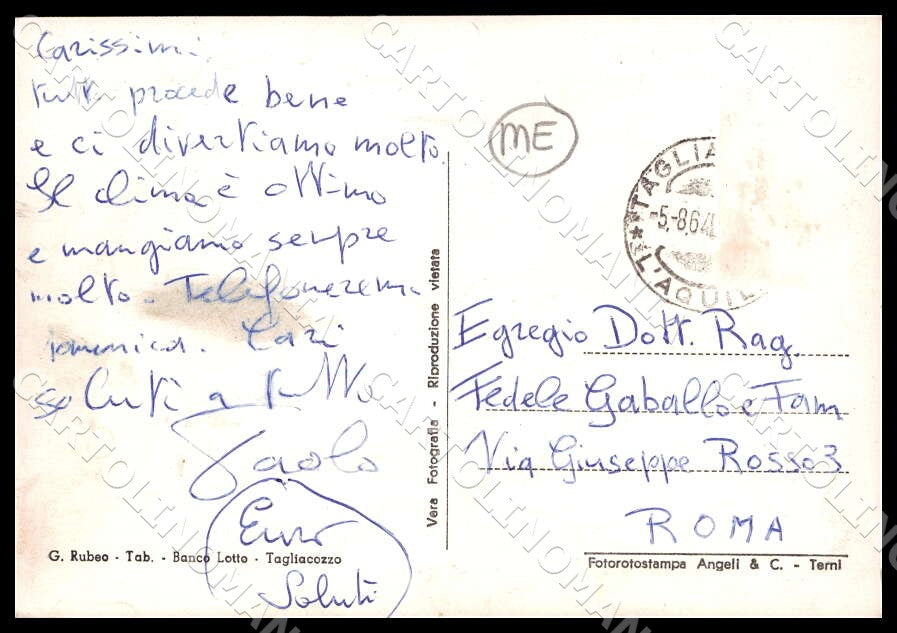 Carissimi,
tutto procede bene
e ci divertiamo molto.
Il clima è ottimo
e mangiamo sempre
molto. Telefoneremo
domenica. Cari
saluti a tutti
Paolo
Saluti
G. Rubeo - Tab. - Banco Lotto - Tagliacozzo
Vera Fotografia - Riproduzione vietata
ME
TAGLIA
-5.-8.64
L'AQUIL
Egregio Dott. Rag.
Fedele Gaballo e Fam
Via Giuseppe Rosso 3
ROMA
Fotorotostampa Angeli & C. - Terni
CARTOLINOMAN